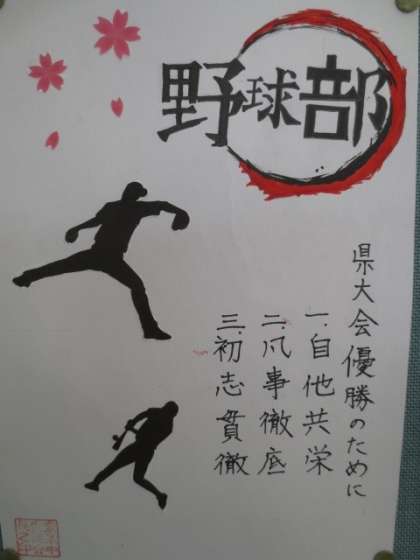 野球部
県大会優勝のために
一.自他共栄
二.凡事徹底
三.初志貫徹